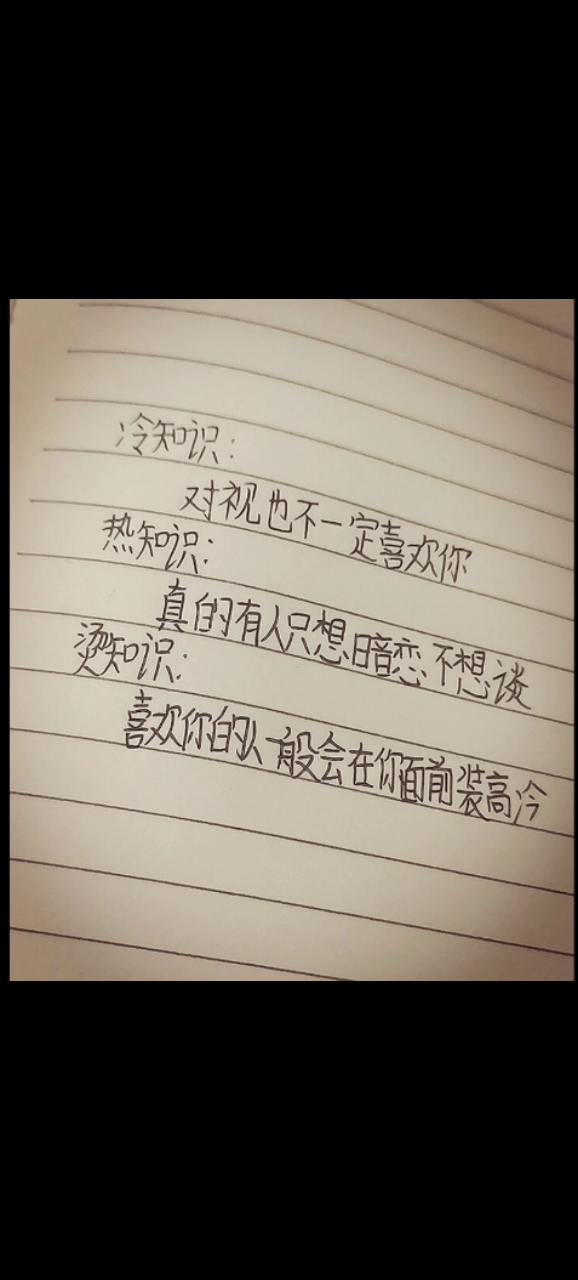 冷知识:
对视也不一定喜欢你
热知识:
真的有人只想暗恋不想谈
烫知识:
喜欢你的人一般会在你面前装高冷